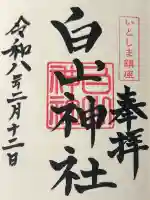 いとしま鎮座
奉拝
白山神社
令和八年二月十二日